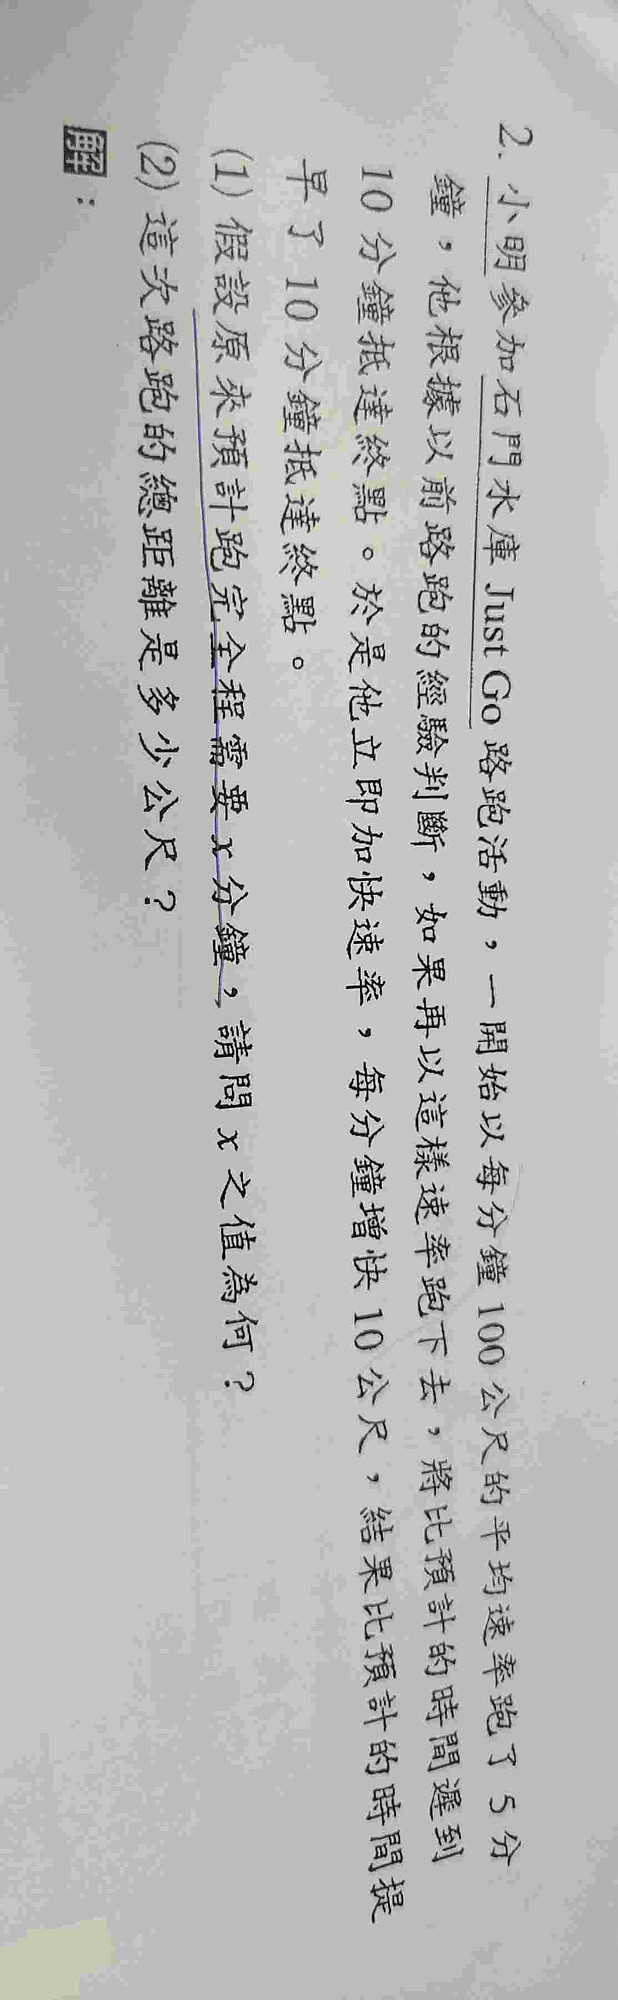 2. 小明參加石門水庫 Just Go 路跑活動，一開始以每分鐘 100 公尺的平均速率跑了 5 分
鐘，他根據以前路跑的經驗判斷，如果再以這樣速率跑下去，將比預計的時間遲到
10 分鐘抵達終點。於是他立即加快速率，每分鐘增快 10 公尺，結果比預計的時間提
早了 10 分鐘抵達終點。
(1) 假設原來預計跑完全程需要 x 分鐘，請問 x 之值為何？
(2) 這次路跑的總距離是多少公尺？
解：